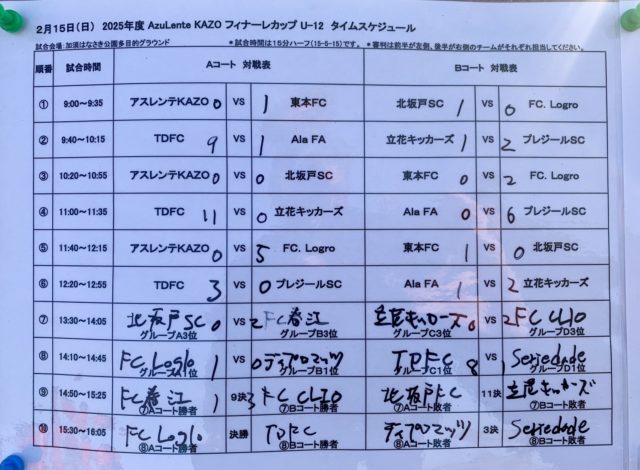 2月15日(日) 2025年度 AzuLente KAZO フィナーレカップ U-12 タイムスケジュール
試合会場: 加須はなさき公園多目的グラウンド *試合時間は15分ハーフ(15-5-15)です。 *審判は前半が左側、後半が右側のチームがそれぞれ担当してください。
順番 試合時間 Aコート 対戦表 Bコート 対戦表
① 9:00～9:35 アスレンテKAZO 0 VS 1 東本FC 北坂戸SC 1 VS 0 FC. Logro
② 9:40～10:15 TDFC 9 VS 1 Ala FA 立花キッカーズ 1 VS 2 プレジールSC
③ 10:20～10:55 アスレンテKAZO 0 VS 0 北坂戸SC 東本FC 0 VS 2 FC. Logro
④ 11:00～11:35 TDFC 11 VS 0 立花キッカーズ Ala FA 0 VS 6 プレジールSC
⑤ 11:40～12:15 アスレンテKAZO 0 VS 5 FC. Logro 東本FC 1 VS 0 北坂戸SC
⑥ 12:20～12:55 TDFC 3 VS 0 プレジールSC Ala FA 1 VS 2 立花キッカーズ
⑦ 13:30～14:05 北坂戸SC 0 VS 2 FC春江 立花キッカーズ 0 VS 2 FC CLIO
グループA3位 グループB3位 グループC3位 グループD3位
⑧ 14:10～14:45 FC Logro 1 VS 0 ディプロマッツ TDFC 8 VS 1 Seriedade
グループA1位 グループB1位 グループC1位 グループD1位
⑨ 14:50～15:25 FC春江 1 9決 3 FC CLIO 北坂戸FC 11決 立花キッカーズ
⑦Aコート勝者 ⑦Bコート勝者 ⑦Aコート敗者 ⑦Bコート敗者
⑩ 15:30～16:05 FC Logro 決勝 TDFC ディプロマッツ 3決 Seriedade
⑧Aコート勝者 ⑧Bコート勝者 ⑧Aコート敗者 ⑧Bコート敗者